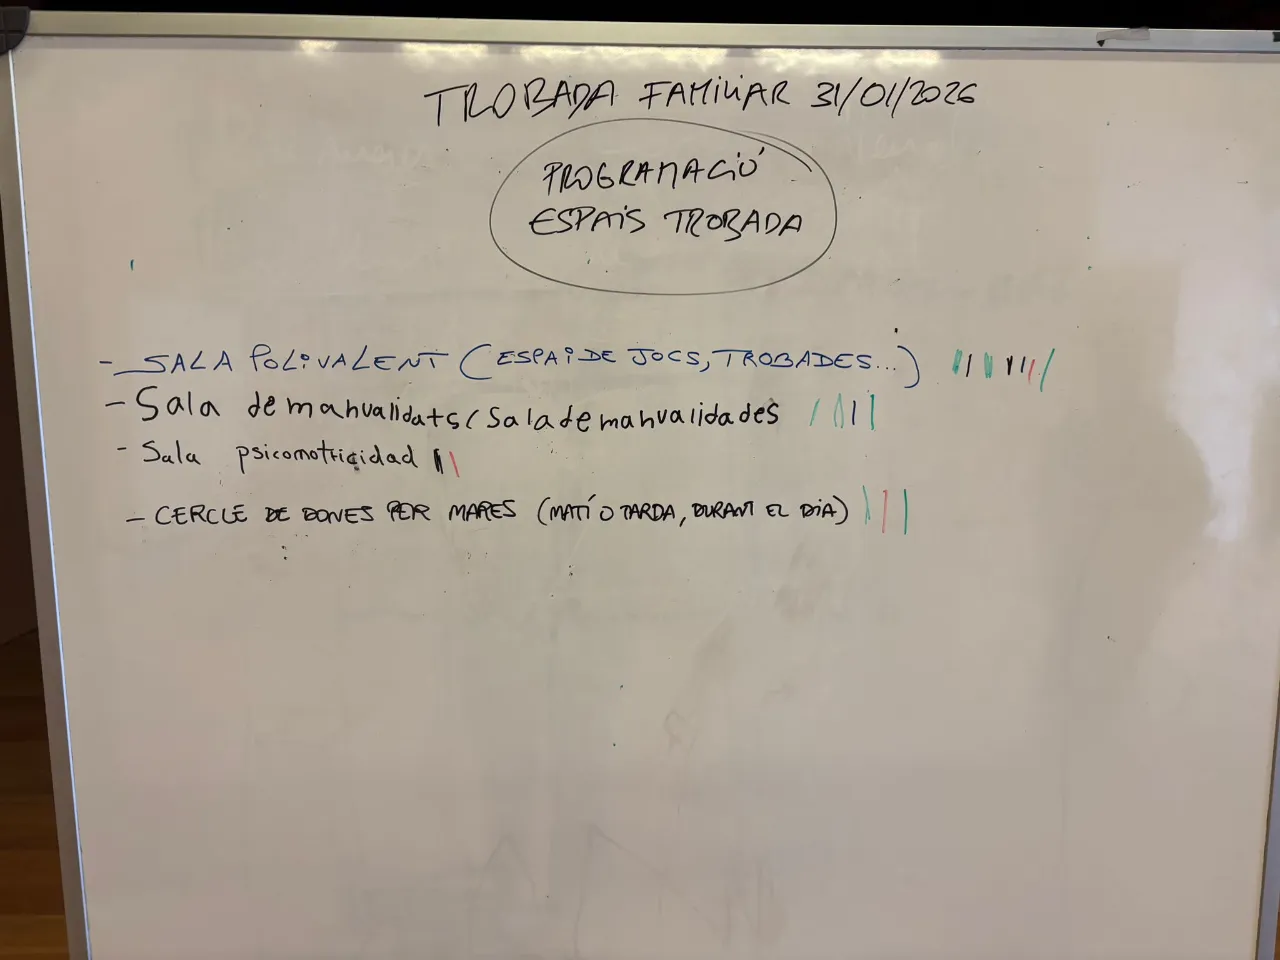 TROBADA FAMILIAR 31/01/2026
PROGRAMACIÓ
ESPAIS TROBADA
- SALA POLIVALENT (ESPAI DE JOCS, TROBADES...)
- Sala de manualidats / Sala de manualidades
- Sala psicomotricidad
- CERCLE DE DONES PER MARES (MATÍ O TARDA, DURANT EL DIA)